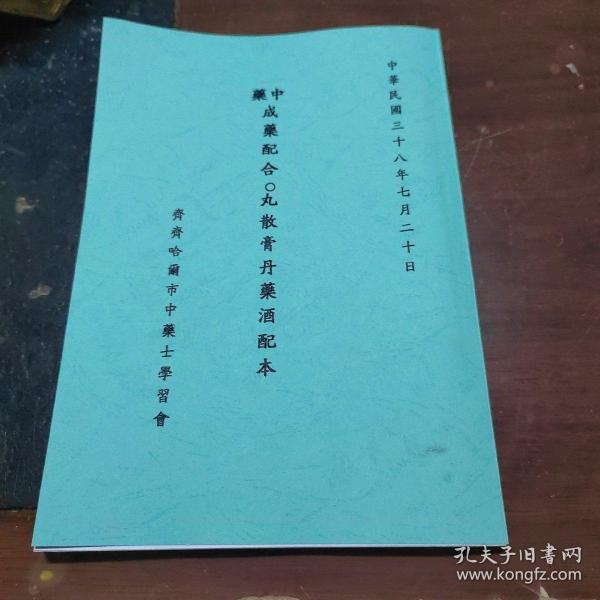 中華民國三十八年七月二十日
中藥成藥配合〇丸散膏丹藥酒配本
齊齊哈爾市中藥士學習會
孔夫子旧書网
www.kongfz.com